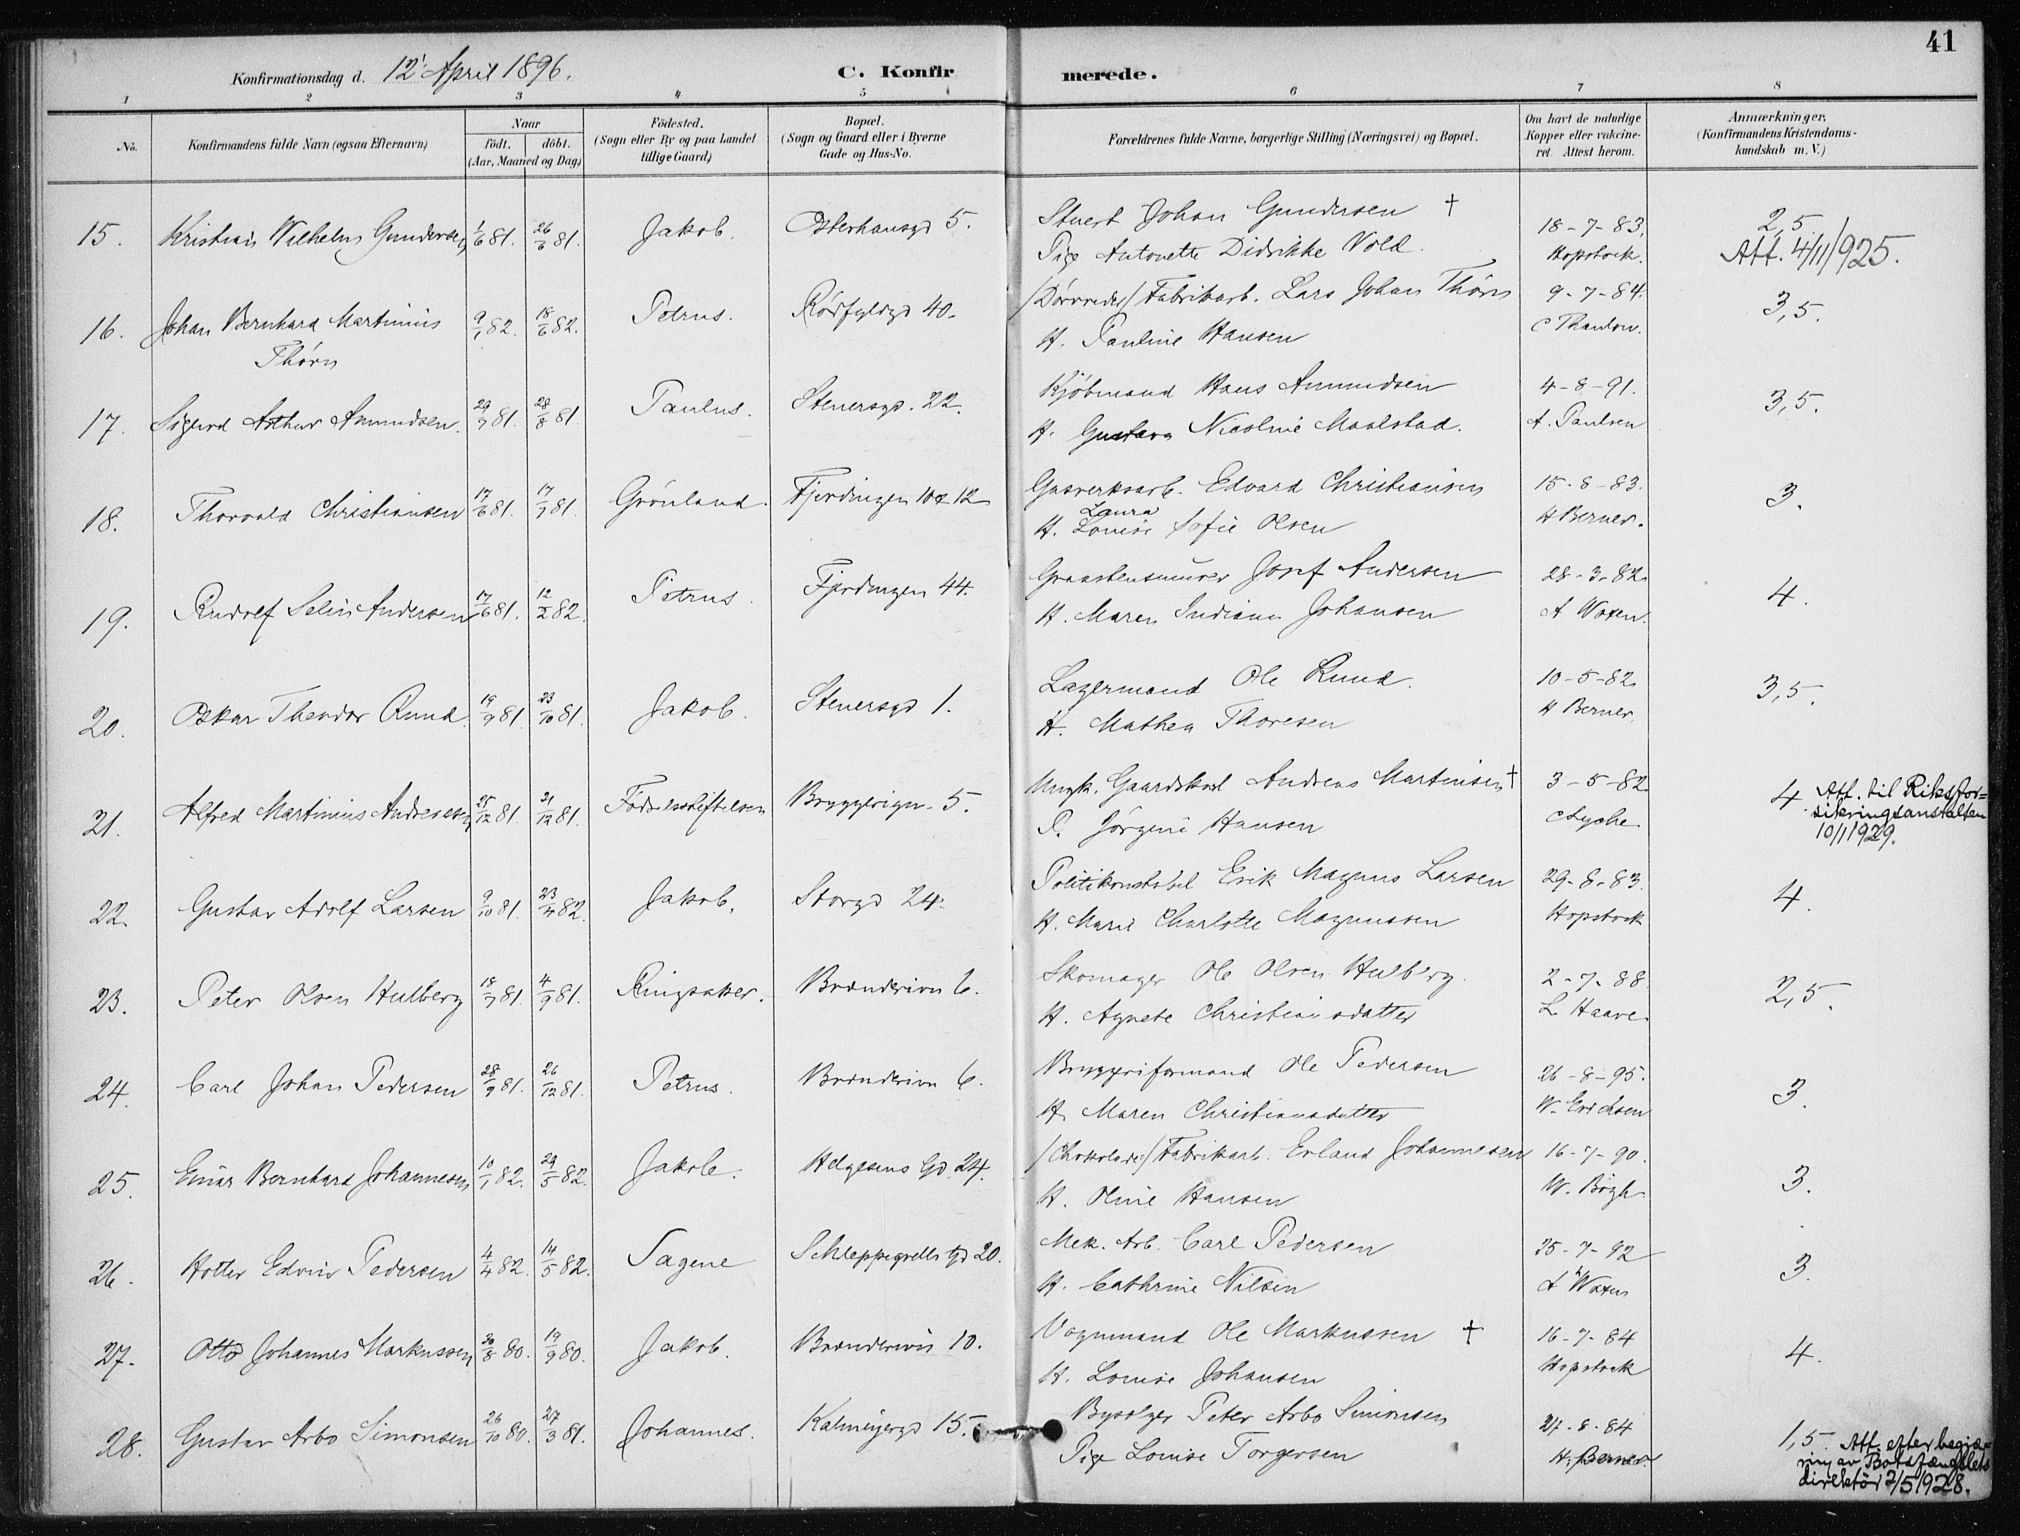 41
Konfirmationsdag d. 12' April 1896. C. Konfirmerede.
1 2 3 4 5 6 7 8
No. Konfirmandens fulde Navn (ogsaa Efternavn) Naar født. døbt. (Aar, Maaned og Dag) Fødested. (Sogn eller By og paa Landet tillige Gaard) Bopæl. (Sogn og Gaard eller i Byerne Gade og Hus-No. Forældrenes fulde Navne, borgerlige Stilling (Næringsvei) og Bopæl. Om havt de naturlige Kopper eller vakcineret. Attest herom. Anmærkninger. (Konfirmandens Kristendomskundskab m. V.)
15. Kristian Wilhelm Gundersen 1/6 81. 26/6 81. Jakob. Osterhausgd 5. Stuert Johan Gundersen † 18-7-83. 2,5.
Pige Antonette Didrikke Vold. Hopstock. Att. 4/11/925.
16. Johan Bernhard Martinius 9/1 82. 18/6 82. Petrus. Rødfyldgd 40. /Dørvreder/ Fabrikarb. Lars Johan Thørn 9-7-84. 3,5.
Thørn H. Pauline Hansen C Thaulow.
17. Sigurd Arthur Amundsen. 29/7 81. 28/8 81. Paulus. Stenersgd. 22. Kjøbmand Hans Amundsen 4-8-91. 3,5.
H. Gustava Nicoline Maalstad. A. Paulsen
18. Thorvald Christiansen 17/6 81. 17/7 81. Grønland. Fjerdingen 10 & 12 Gasverksarb. Edvard Christiansen 15-8-83. 3.
Laura
H. Louise Sofie Olsen H Berner.
19. Rudolf Selius Andersen 17/6 81. 12/2 82. Petrus. Fjerdingen 44. Graastensmurer Josef Andersen 28-3-82. 4.
H. Maren Indiana Johansen A Woxen.
20. Oskar Theodor Ruud. 19/9 81. 23/10 81. Jakob. Stenersgd 1. Lagermand Ole Ruud. 10-5-82. 3,5.
H. Mathea Thoresen H Berner.
21. Alfred Martinius Andreasen 25/12 81. 31/12 81. Fødselsstiftelsen Bryggerigr. 5. Ungk. Gaardskarl Andreas Martinsen † 3-5-82 4. Att. til Riksfor=
sikringsanstalten
P. Jørgine Hansen Lyche. 10/1 1929.
22. Gustav Adolf Larsen 9/10 81. 23/4 82. Jakob. Storgd 24. Politikonstabel Erik Magnus Larsen 29-8-83. 4.
H. Marie Charlotte Magnussen Hopstock
23. Peter Olsen Hulberg 18/7 81. 4/9 81. Ringsaker. Brænderivn 6. Skomager Ole Olsen Hulberg. 2-7-88 2,5.
H. Agnete Christiansdatter L. Haave.
24. Carl Johan Pedersen 28/9 81. 26/12 81. Petrus. Brænderivn 6. Bryggeriformand Ole Pedersen 26-8-95. 3.
H. Maren Christiansdatter W. Erichsen
25. Einar Bernhard Johannesen 10/1 82. 29/5 82. Jakob. Helgesens Gd. 24. /Chokolade/ Fabrikarb. Erland Johannesen 16-7-90. 3.
H. Oline Hansen W. Bøgh.
26. Holter Edvin Pedersen 4/4 82. 14/5 82. Sagene Schleppegrells Gd 20. Mek. Arb. Carl Pedersen 25-7-92 3.
H. Cathrine Nilsen A Woxen
27. Otto Johannes Markussen 30/8 80. 19/9 80. Jakob. Brænderivn 10. Vognmand Ole Markussen † 16-7-84 4.
H. Louise Johansen Hopstock
28. Gustav Arbo Simonsen 26/10 80. 27/3 81. Johannes. Kalmeyergd 15. Bysælger Peter Arbo Simonsen 27-8-84 1,5. Att. efter begjæ-
ring av Botsfængslets
Pige Louise Torgersen H. Berner. direktør 2/5 1928.